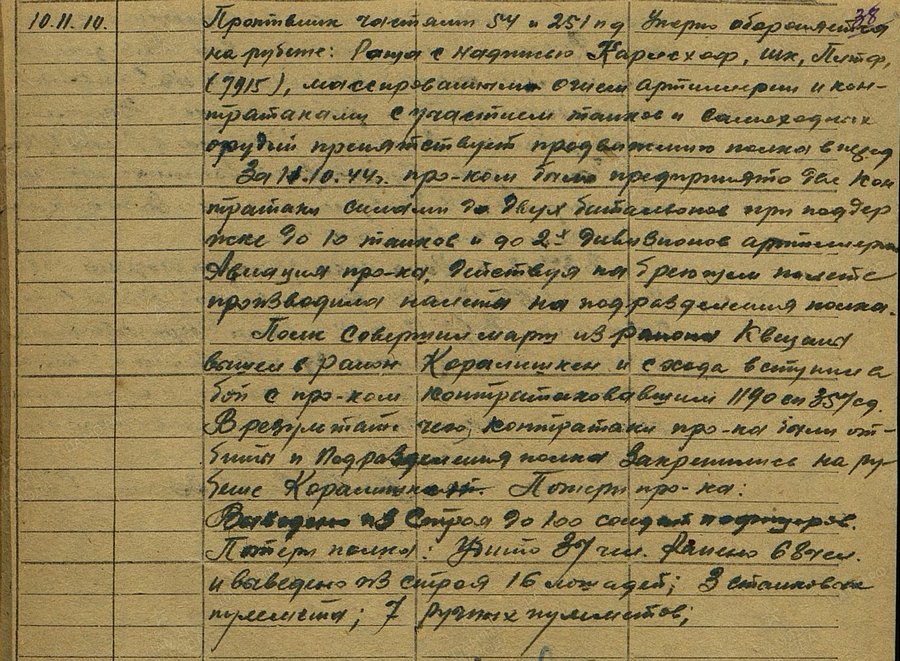 38
10.11.10. Противник частями 54 и 251 пд Упорно обороняется
на рубеже: Роща с надписью Каресхоф, шк,
(7915), массированным огнем артиллерии и кон-
тратаками с участием танков и самоходных
орудий препятствует продвижению полка вперед
За 11.10.44г. про-ком было предпринято две кон
тратаки силами до двух батальонов при поддер
жке до 10 танков и до 2х дивизионов артиллерии
Авиация про-ка, действуя на бреющем полете
производила налеты на подразделения полка.
Полк совершил марш из района
вышел в район Коралишкен и с хода вступил в
бой с про-ком контратаковавшим 1190 сп 357 сд.
В результате чего, контратаки про-ка были от-
биты и Подразделения полка Закрепились на ру-
беже Потери про-ка:
Выведено из Строя до 100 солдат и офицеров.
Потери полка: Убито 37 чел. Ранено 68 чел.
и выведено из строя 16 лошадей; 3 станковых
пулемета; 7 ручных пулеметов;